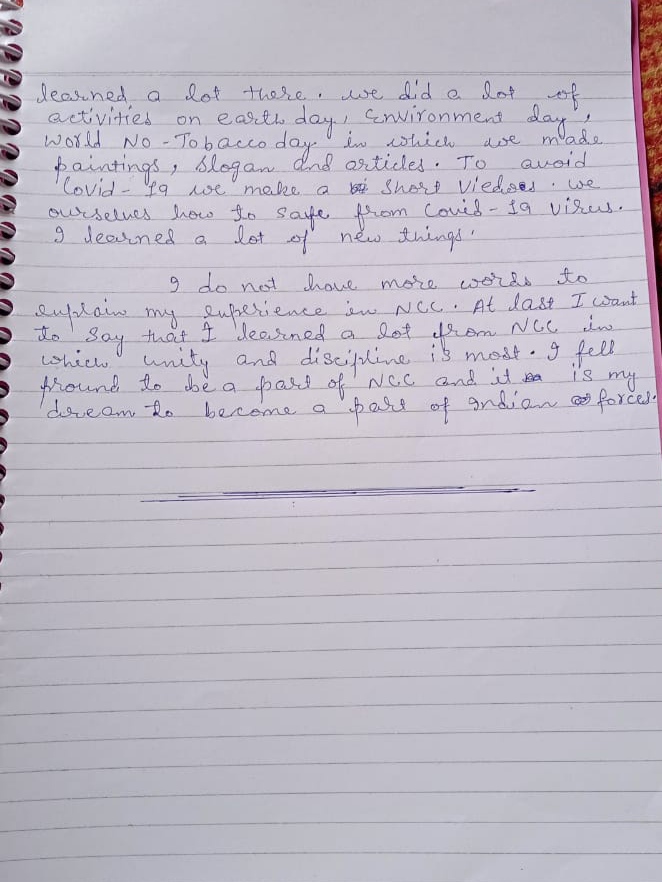 learned a lot there. we did a lot of
activities on earth day, Environment day,
World No-Tobacco day in which we made
paintings, slogan and articles. To avoid
Covid-19 we make a short Viedoes. we
ourselves how to safe from Covid-19 virus.
I learned a lot of new things.
I do not have more words to
explain my experience in NCC. At last I want
to say that I learned a lot from NCC in
which unity and discipline is most. I fell
pround to be a part of NCC and it is my
dream to become a part of Indian forces.